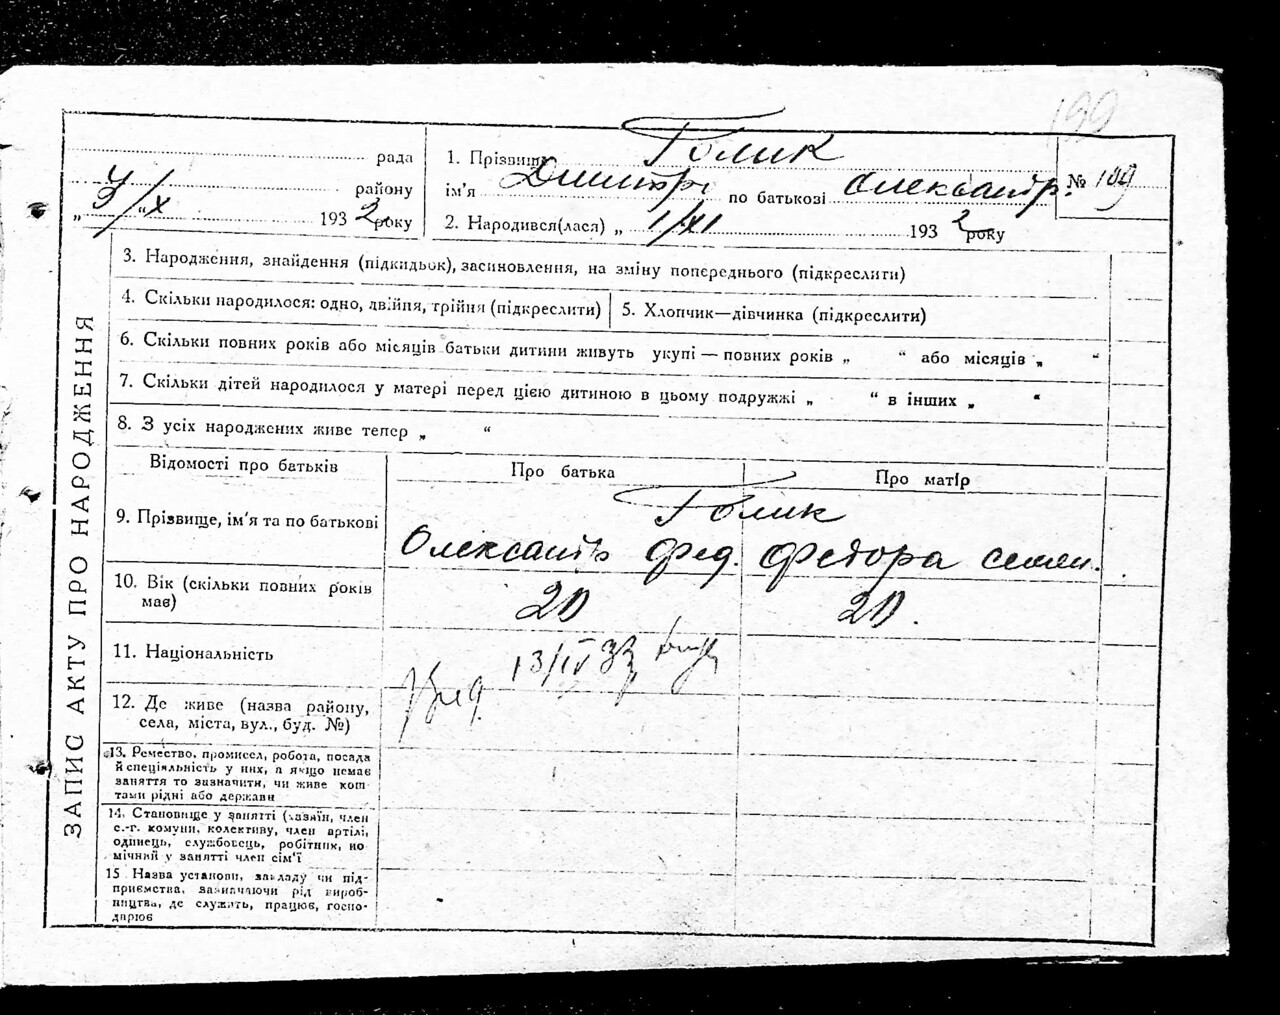 199
рада
району
„ 3/ХІ 1932 року
1. Прізвище Голик
ім'я Дмитрі по батькові Олександр.
2. Народився(лася) „ 1/ХІ 1932 року
№ 199
ЗАПИС АКТУ ПРО НАРОДЖЕННЯ
3. Народження, знайдення (підкидьок), засиновлення, на зміну попереднього (підкреслити)
4. Скільки народилося: одно, двійня, трійня (підкреслити)
5. Хлопчик—дівчинка (підкреслити)
6. Скільки повних років або місяців батьки дитини живуть укупі — повних років „ “ або місяців „ “
7. Скільки дітей народилося у матері перед цією дитиною в цьому подружжі „ “ в інших „ “
8. З усіх народжених живе тепер „ “
Відомості про батьків
Про батька
Про матір
9. Прізвище, ім'я та по батькові
Голик
Олександр Фед. Федора Семен.
10. Вік (скільки повних років
має)
20
20.
11. Національність
13/IV 33
12. Де живе (назва району,
села, міста, вул., буд. №)
13. Ремество, промисел, робота, посада
й спеціяльність у них, а якщо немає
заняття то зазначити, чи живе кош
тами рідні або держави
14. Становище у занятті (хазяїн, член
с.-г. комуни, колективу, член артілі,
одинець, службовець, робітник, по
мічний у занятті член сім'ї
15 Назва установи, закладу чи під-
приємства, зазначаючи рід вироб-
ництва, де служить, працює, госпо-
дарює